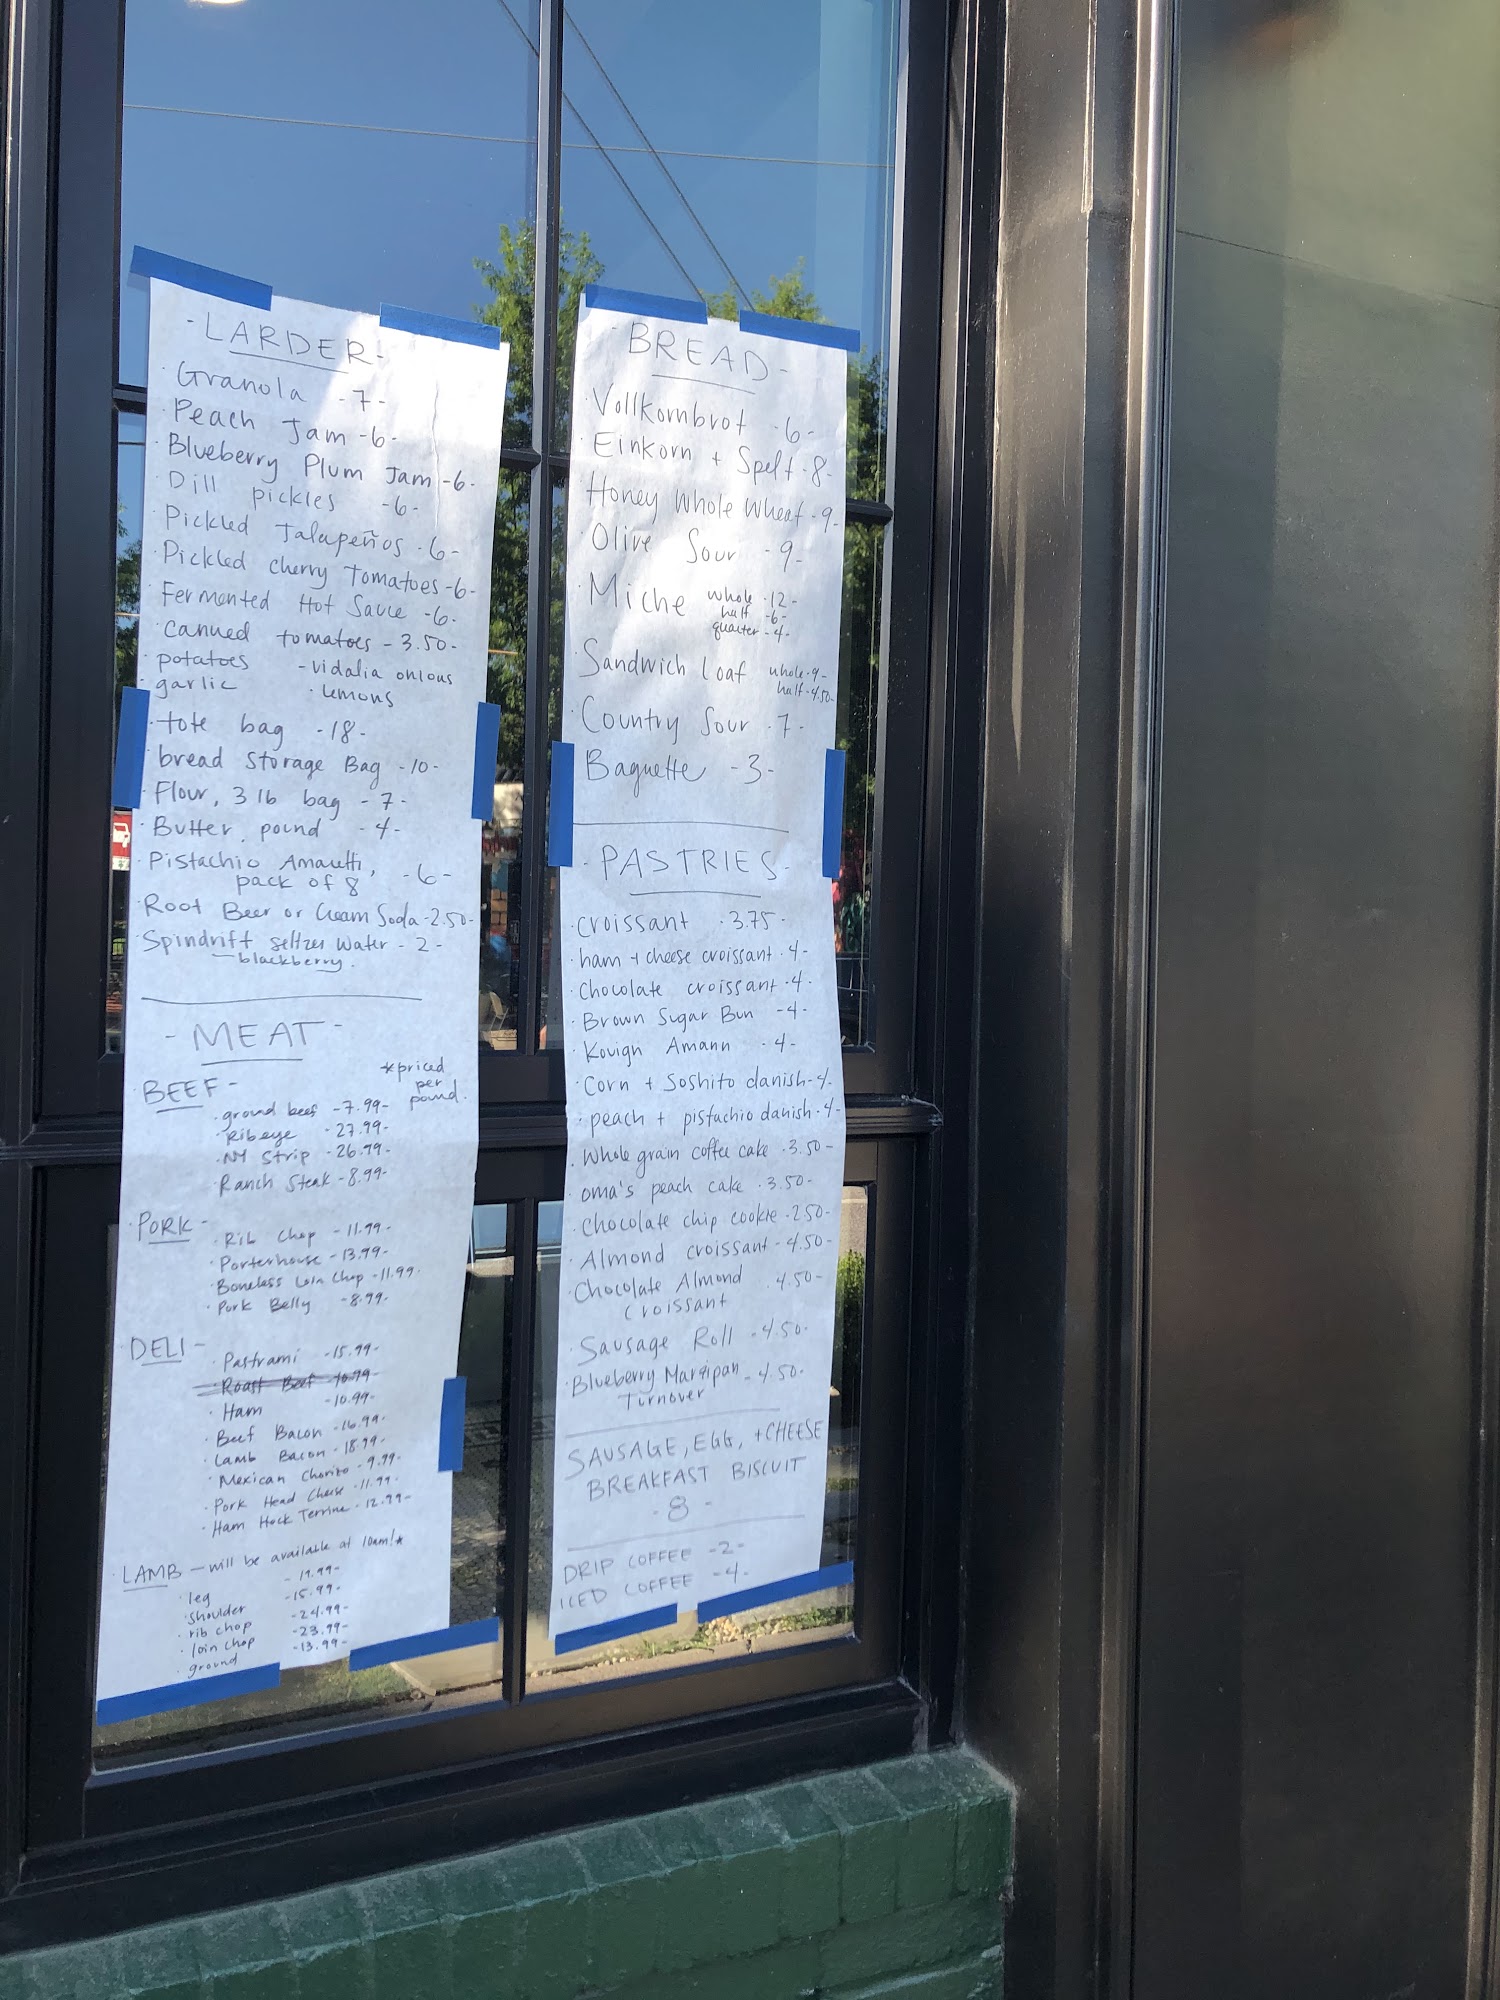 - LARDER -
· Granola - 7 -
· Peach Jam - 6 -
· Blueberry Plum Jam - 6 -
· Dill pickles - 6 -
· Pickled Jalapeños - 6 -
· Pickled cherry Tomatoes - 6 -
· Fermented Hot Sauce - 6 -
· canned tomatoes - 3.50 -
· potatoes - vidalia onions
· garlic · lemons
· tote bag - 18 -
· bread Storage Bag - 10 -
· Flour, 3 lb bag - 7 -
· Butter, pound - 4 -
· Pistachio Amaretti,
pack of 8 - 6 -
· Root Beer or Cream Soda - 2.50 -
· Spindrift seltzer water - 2 -
blackberry.
- MEAT -
*priced
per
pound.
· BEEF -
· ground beef - 7.99 -
· Ribeye - 27.99 -
· NY Strip - 26.99 -
· Ranch Steak - 8.99 -
· PORK -
· Rib Chop - 11.99 -
· Porterhouse - 13.99 -
· Boneless Loin Chop - 11.99 ·
· Pork Belly - 8.99 -
· DELI -
· Pastrami - 15.99 -
· Roast Beef - 10.99 -
· Ham - 10.99 -
· Beef Bacon - 16.99 -
· Lamb Bacon - 18.99 -
· Mexican Chorizo - 9.99 -
· Pork Head Cheese - 11.99 -
· Ham Hock Terrine - 12.99 -
· LAMB - will be available at 10am! *
· leg
· shoulder - 15.99 -
· rib chop - 24.99 -
· loin chop - 23.99 -
· ground - 13.99 -
- BREAD -
· Vollkornbrot - 6 -
· Einkorn + Spelt - 8 -
· Honey Whole Wheat - 9 -
· Olive Sour - 9 -
· Miche whole - 12 -
half - 6 -
quarter - 4 -
· Sandwich Loaf whole - 9 -
half - 4.50 -
· Country Sour - 7 -
· Baguette - 3 -
- PASTRIES -
· croissant - 3.75 -
· ham + cheese croissant - 4 -
· Chocolate croissant - 4 -
· Brown Sugar Bun - 4 -
· Kouign Amann - 4 -
· Corn + Soshito danish - 4 -
· peach + pistachio danish - 4 -
· Whole grain coffee cake - 3.50 -
· oma's peach cake - 3.50 -
· Chocolate chip cookie - 2.50 -
· Almond croissant - 4.50 -
· Chocolate Almond
Croissant - 4.50 -
· Sausage Roll - 4.50 -
· Blueberry Marzipan
Turnover - 4.50 -
SAUSAGE, EGG, + CHEESE
BREAKFAST BISCUIT
- 8 -
DRIP COFFEE - 2 -
ICED COFFEE - 4 -